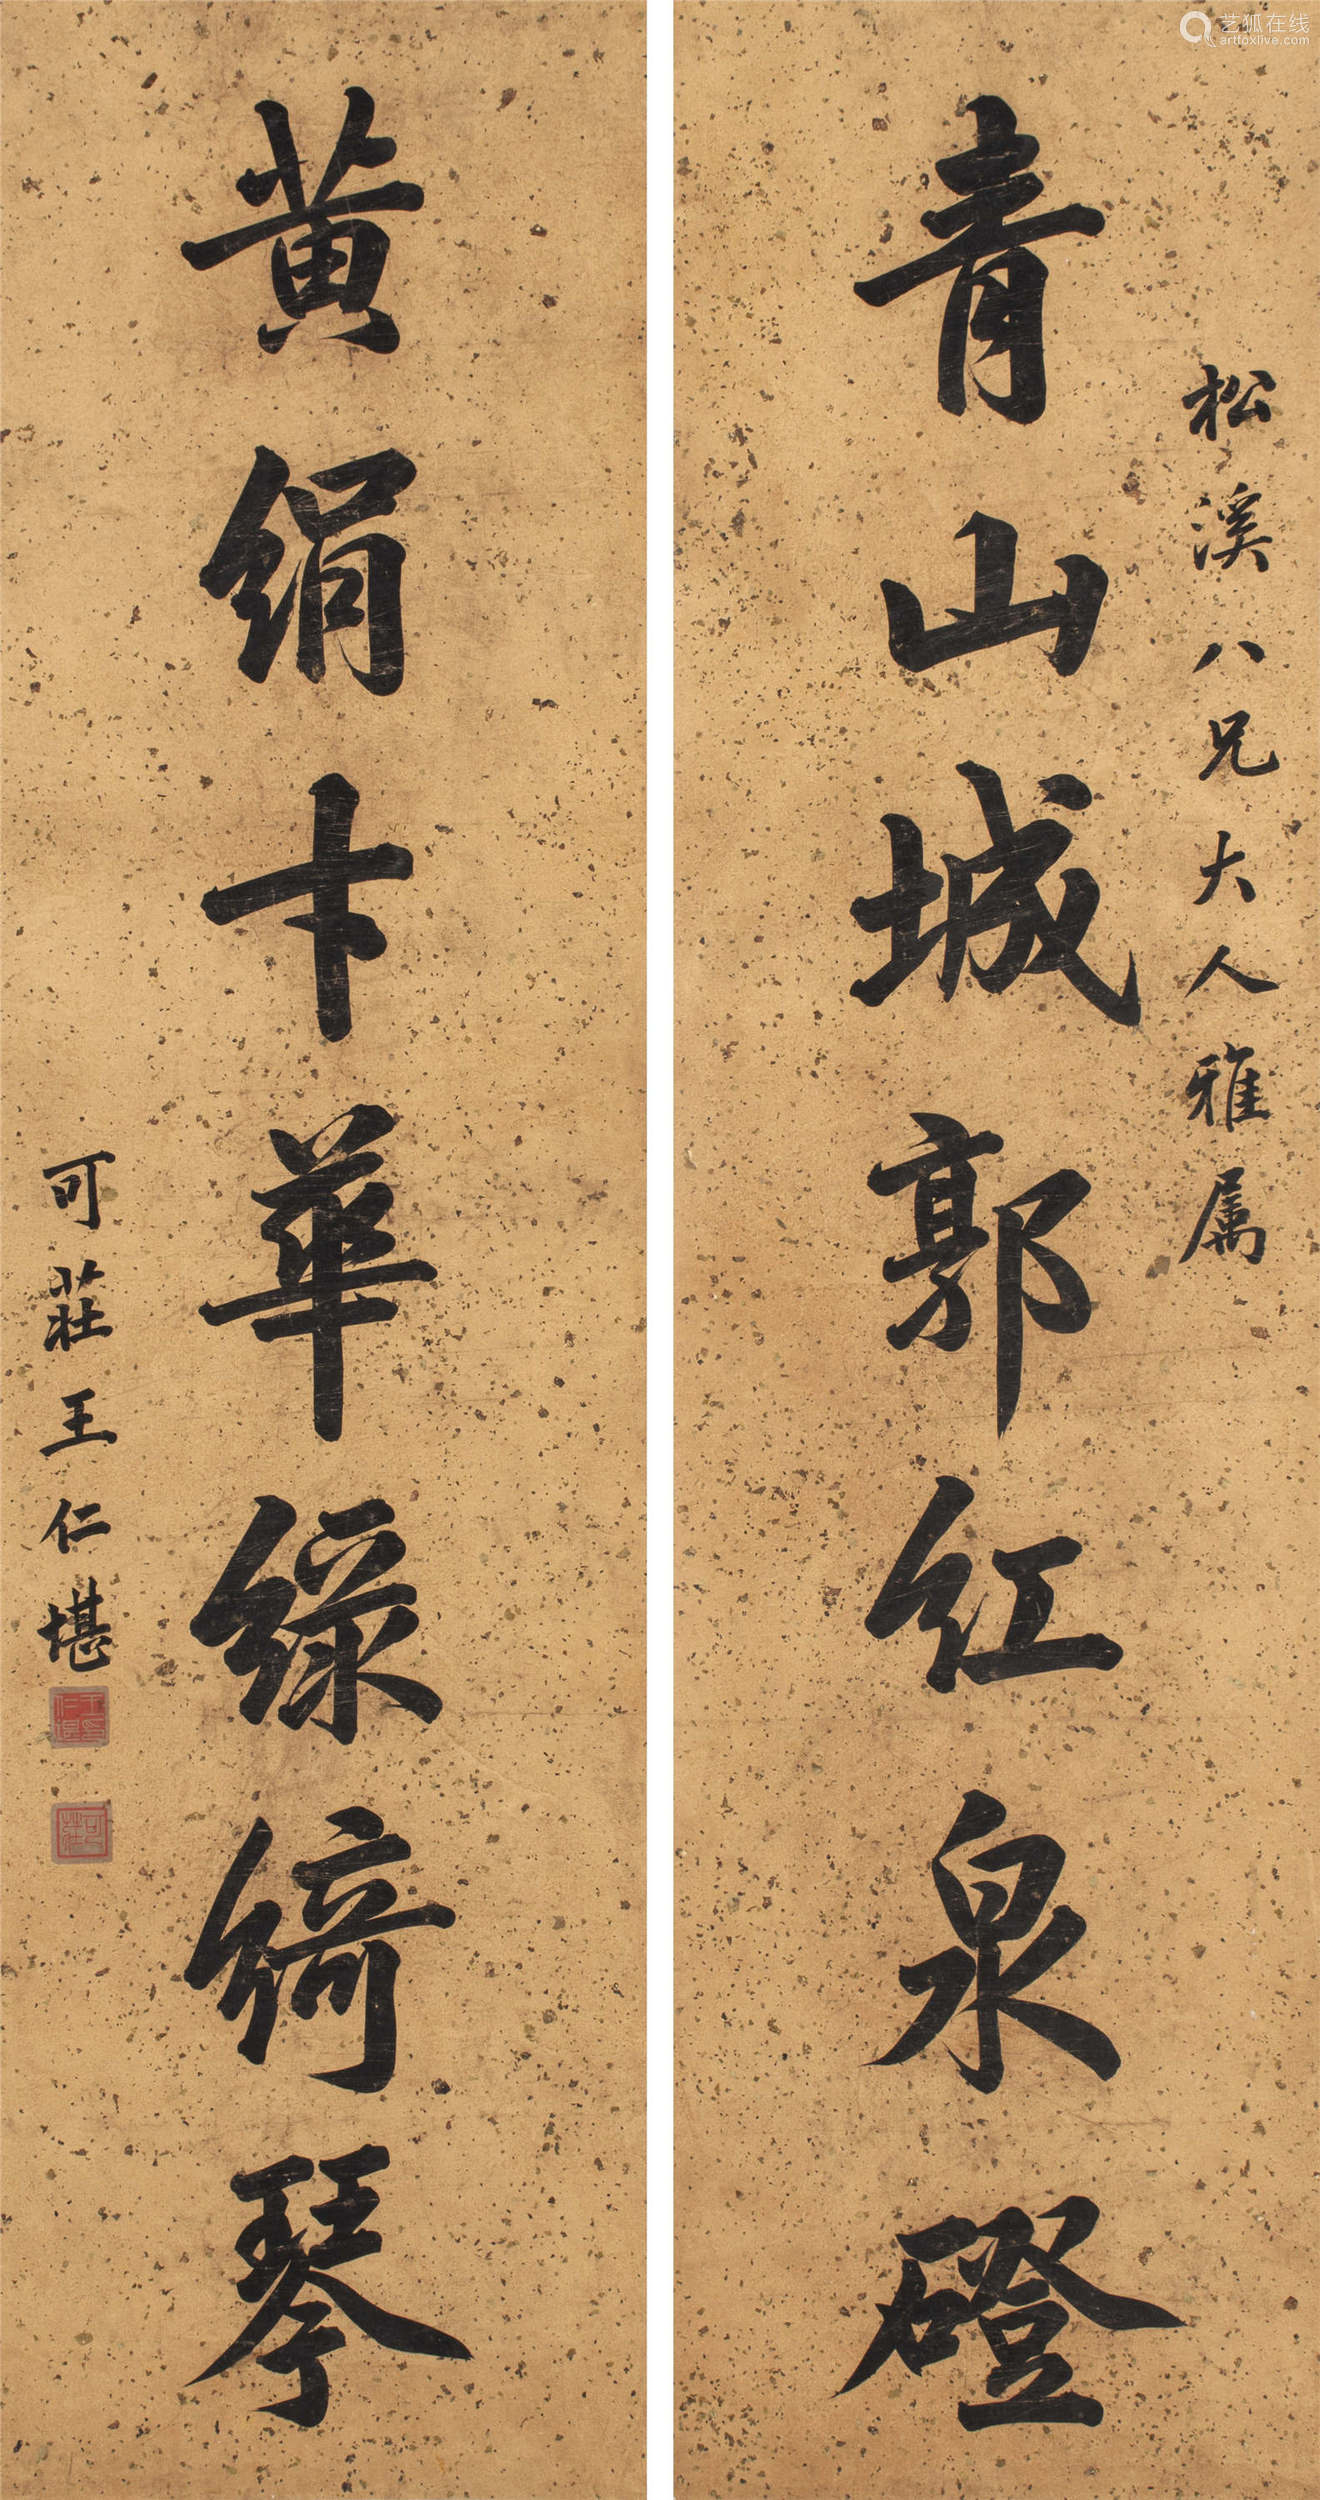 松溪八兄大人雅属
青山城郭红泉磴
黄绢卞华绿绮琴
可莊王仁堪
王仁堪印
可莊
艺狐在线
artfoxlive.com